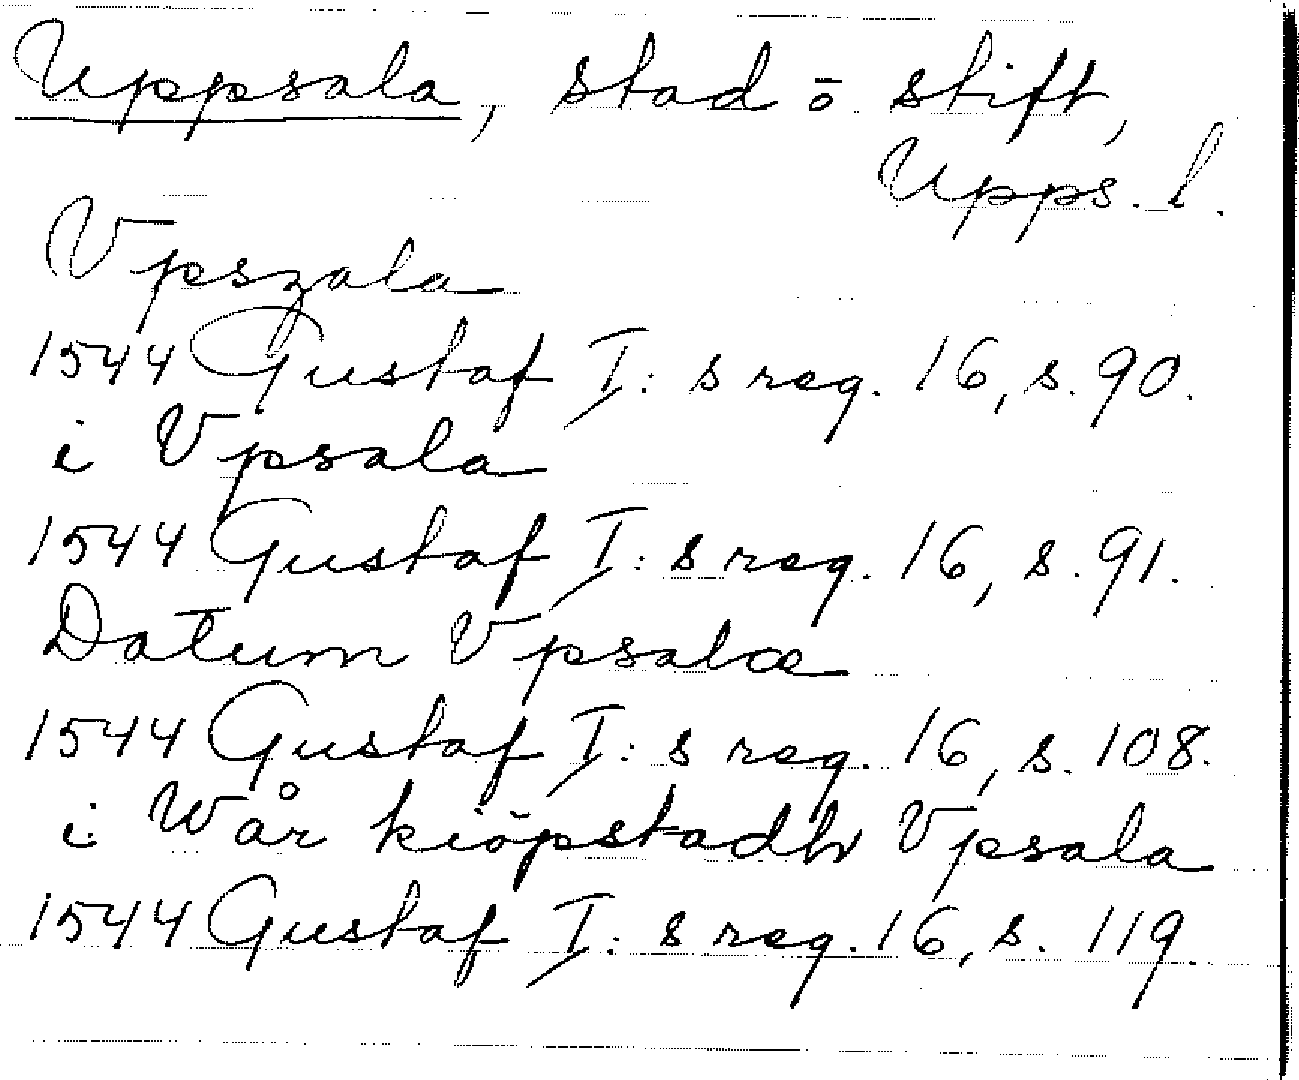 Uppsala, stad ō stift,
Upps. l.
Vpszala
1544 Gustaf I: s reg. 16, s. 90.
i Vpsala
1544 Gustaf I: s reg. 16, s. 91.
Datum Vpsalæ
1544 Gustaf I: s reg. 16, s. 108.
i Wår kiöpstadh Vpsala
1544 Gustaf I: s reg. 16, s. 119.